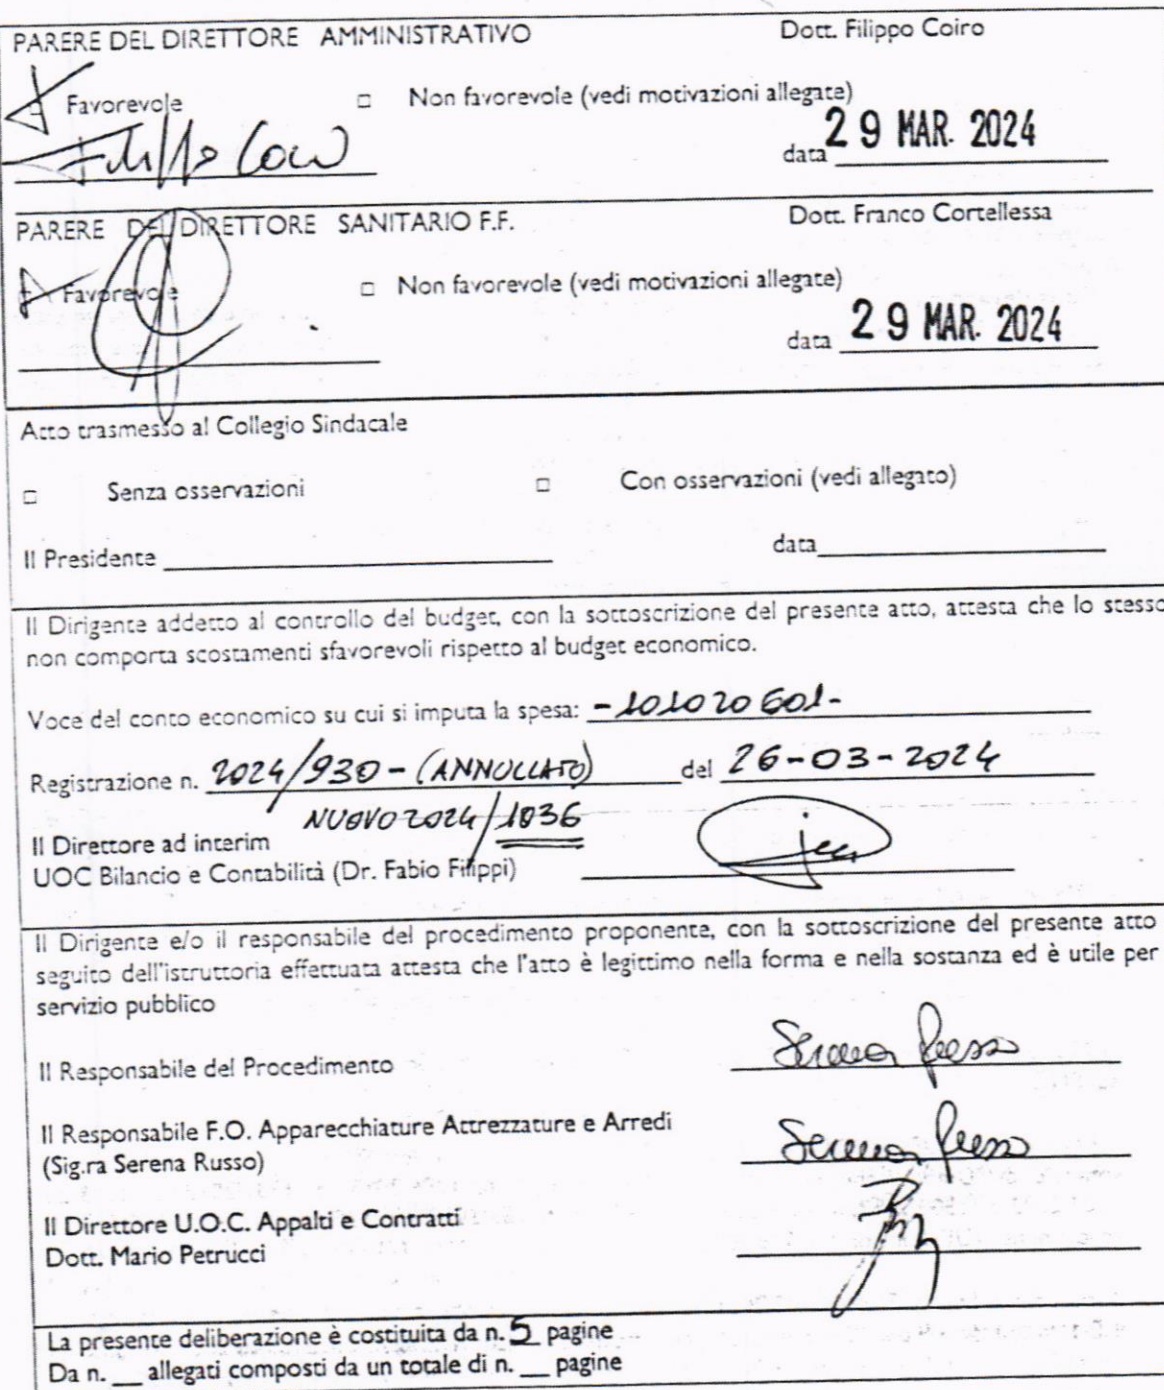 PARERE DEL DIRETTORE AMMINISTRATIVO Dott. Filippo Coiro
Favorevole □ Non favorevole (vedi motivazioni allegate)
Filippo Coiro
data 29 MAR. 2024
PARERE DEL DIRETTORE SANITARIO F.F. Dott. Franco Cortellessa
Favorevole □ Non favorevole (vedi motivazioni allegate)
data 29 MAR. 2024
Atto trasmesso al Collegio Sindacale
□ Senza osservazioni □ Con osservazioni (vedi allegato)
Il Presidente data
Il Dirigente addetto al controllo del budget, con la sottoscrizione del presente atto, attesta che lo stesso
non comporta scostamenti sfavorevoli rispetto al budget economico.
Voce del conto economico su cui si imputa la spesa: -101020601-
Registrazione n. 2024/930-(ANNULLATO) del 26-03-2024
NUOVO 2024/1036
Il Direttore ad interim
UOC Bilancio e Contabilità (Dr. Fabio Filippi)
Il Dirigente e/o il responsabile del procedimento proponente, con la sottoscrizione del presente atto
seguito dell'istruttoria effettuata attesta che l'atto è legittimo nella forma e nella sostanza ed è utile per
servizio pubblico
Il Responsabile del Procedimento Serena Russo
Il Responsabile F.O. Apparecchiature Attrezzature e Arredi
(Sig.ra Serena Russo) Serena Russo
Il Direttore U.O.C. Appalti e Contratti
Dott. Mario Petrucci
La presente deliberazione è costituita da n. 5 pagine
Da n. __ allegati composti da un totale di n. __ pagine